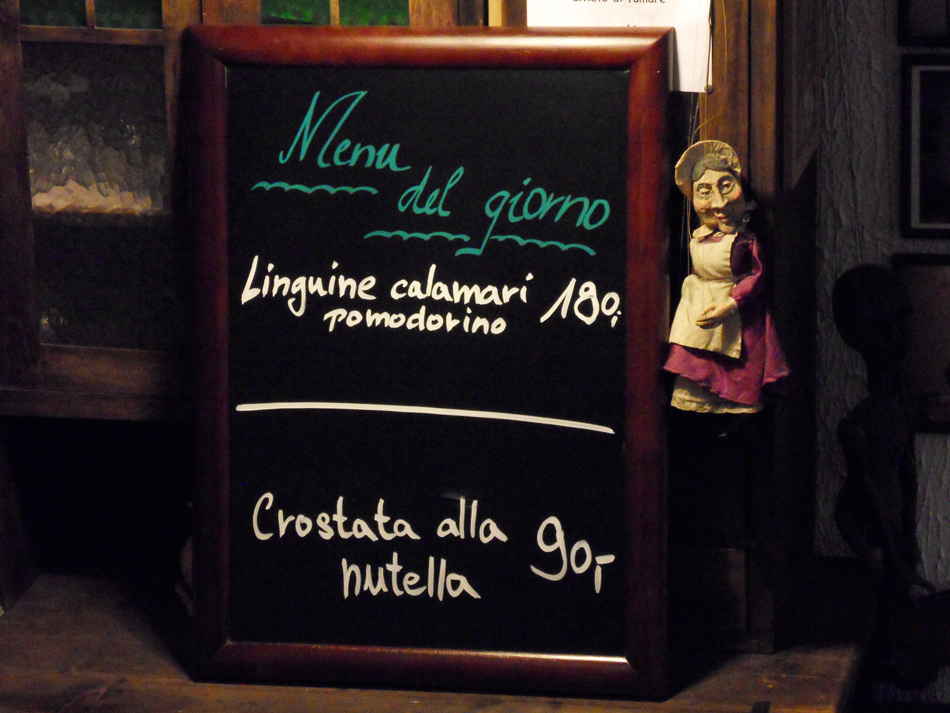 Menu
del giorno
Linguine calamari 180,-
pomodorino
Crostata alla
nutella 90,-